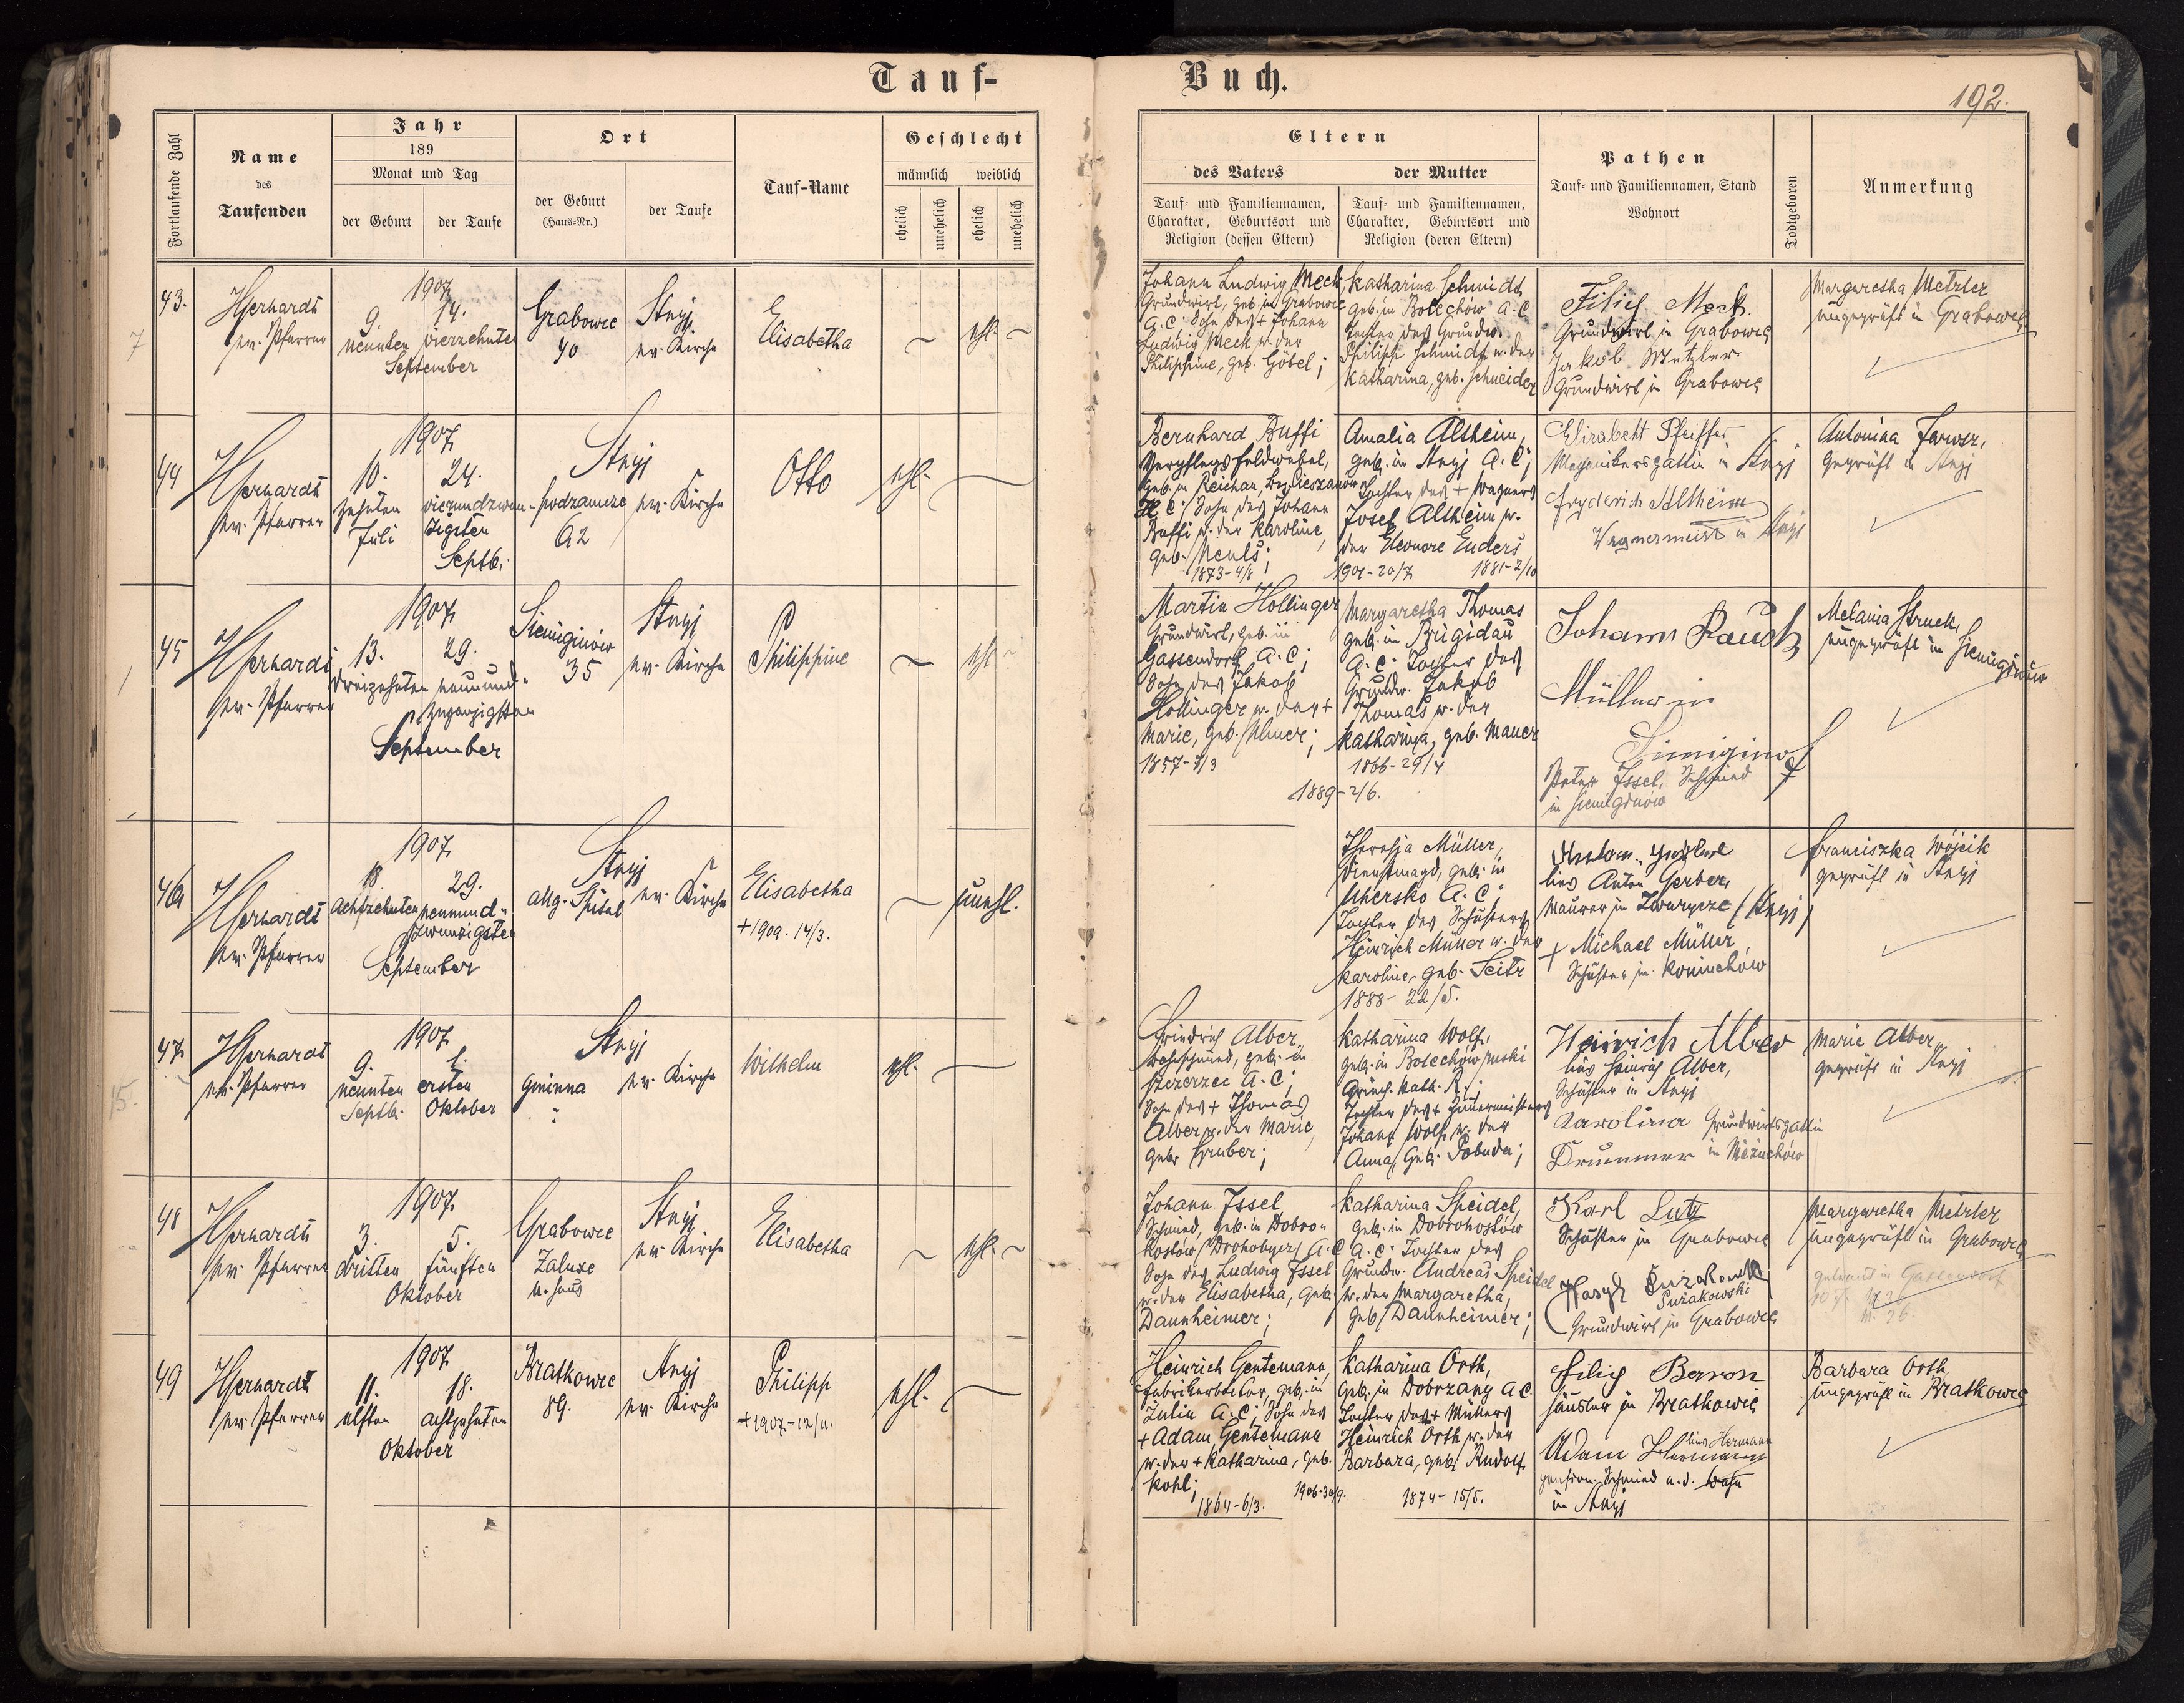 Tauf-
Buch.
192.
Fortlaufende Zahl
Name
des
Taufenden
Jahr
189
Monat und Tag
der Geburt
der Taufe
Ort
der Geburt
(Haus-Nr.)
der Taufe
Tauf-Name
Geschlecht
männlich
weiblich
ehelich
unehelich
ehelich
unehelich
Eltern
des Vaters
Tauf- und Familiennamen,
Charakter, Geburtsort und
Religion (dessen Eltern)
der Mutter
Tauf- und Familiennamen,
Charakter, Geburtsort und
Religion (deren Eltern)
Pathen
Tauf- und Familiennamen, Stand
Wohnort
Todtgeboren
Anmerkung
43.
7
ev. Pfarrer
1907
9.
neunten
14.
vierzehnten
September
Grabowce
40
Stryj
ev. Kirche
Elisabetha
ehl.
Johann Ludwig Meck,
Grundwirt, geb. in Grabowce
A. C. Sohn des + Johann
Ludwig Meck u. der
Philippine, geb. Göbel;
Katharina Schmidt,
geb. in Bolechów A. C.
Tochter des Grundw.
Philipp Schmidt u. der
Katharina, geb. Schneider
Filip Meck
Grundwirt in Grabowce
Jakob Metzler
Grundwirt in Grabowce
Margaretha Metzler
ungeprüft in Grabowce
44
ev. Pfarrer
1907
10.
zehnten
Juli
24.
vierundzwan-
zigsten
Septb.
Stryj
podzamcze
62
ev. Kirche
Otto
ehl.
Bernhard Buffi
Verpflegsfeldwebel,
geb. in Reichau, Bez. Cieszanów
H. C. Sohn des Johann
Buffi u. der Karoline,
geb.
1873-4/8
Amalia Altheim,
geb. in Stryj A. C;
Tochter des + Wagners
Josef Altheim u.
der Eleonore Enders
1901-20/7
1881-2/10
Elisabeht Pfeiffer
in Stryj
Fryderich Altheim
Wagnermeist. in Stryj
Antonina
geprüft in Stryj
45
ev. Pfarrer
1907
13.
dreizehnten
29.
neunund-
zwanzigsten
September
Sieniginów
35
Stryj
ev. Kirche
Philippine
ehl
Martin Hollinger
Grundwirt, geb. in
Gassendorf, A. C;
Sohn des Jakob
Hollinger u. der +
Marie, geb.
1857-3/3
1889-2/6.
Margaretha Thomas
geb. in Brigidau
A. C. Tochter des
Grundw. Jakob
Thomas u. der
Katharina, geb. Mauer
1866-29/4
Johann Rauch
Müller in
Siniginof
Peter Issel, Schmied
in Sieniginów
Melania Struck,
ungeprüft in Sieniginów
46
ev. Pfarrer
1907
18
achtzehnten
29.
neunund-
zwanzigsten
September
Stryj
allg. Spital
ev. Kirche
Elisabetha
+1909. 14/3.
unehl.
Theresia Müller,
Dienstmagd, geb. in
Uhersko A. C;
Tochter des Schusters
Heinrich Müller u. der
Karoline, geb. Seitz
1888-22/5.
lies Anton Gerber,
Maurer in Zwurycze (Stryj)
+ Michael Müller,
Schuster in Koniuchów
Franciszka Wójcik
geprüft in Stryj
47
15.
ev. Pfarrer
1907
9.
neunten
Septb.
1.
ersten
Oktober
Stryj
gminna
ev. Kirche
Wilhelm
ehl.
Friedrich Alber,
geb. in
Szczerzec A. C;
Sohn des + Thomas
Alber u. der Marie,
geb. Gruber;
Katharina Wolf,
geb. in Bolechów ruski
Griech. kath. R.;
Tochter des + Zimmermeisters
Johann Wolf u. der
Anna, geb. Pobuda;
Heinrich Alber
lies Heinrich Alber,
Schuster in Stryj
Karolina Grundwirtsgattin
Drummer in Nieżuchów
Marie Alber,
geprüft in Stryj
48
ev. Pfarrer
1907
3.
dritten
5.
fünften
Oktober
Grabowce
Załuże
Stryj
ev. Kirche
Elisabetha
ehl.
Johann Issel,
Schmied, geb. in Dobro-
hostów (Drohobycz) A. C
Sohn des Ludwig Issel
u. der Elisabetha, geb.
Dannheimer;
Katharina Speidel,
geb. in Dobrohostów
A. C. Tochter des
Grundw. Andreas Speidel
u. der Margaretha,
geb. Dannheimer;
Karl Lutz
Schuster in Grabowce
Sużakowski
Grundwirt in Grabowce
Margaretha Metzler
ungeprüft in Grabowce
49
ev. Pfarrer
1907
11.
elften
18.
achtzehnten
Oktober
Bratkowce
89.
Stryj
ev. Kirche
Philipp
+1907-12/11.
ehl.
Heinrich Gentemann,
Fabrikarbeiter, geb. in
Julin A. C; Sohn des
+ Adam Gentemann
u. der + Katharina, geb.
Kohl;
1864-6/3.
1906-30/9.
Katharina Orth,
geb. in Dobrzany A C
Tochter des + Müllers
Heinrich Orth u. der
Barbara, geb. Rudolf
1874-15/5.
Filip Baron
Häusler in Bratkowce
Adam Hermann
lies Hermann
pension. Schmied a. d. Bahn
in Stryj
Barbara Orth
ungeprüft in Bratkowce